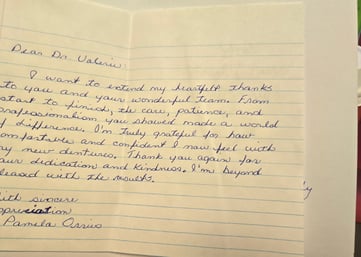 Dear Dr. Valerie
I want to extend my heartfelt thanks
to you and your wonderful team. From
start to finish, the care, patience, and
professionalism you showed made a world
of difference. I'm truly grateful for how
omfortable and confident I now feel with
ny new dentures. Thank you again for
our dedication and kindness. I'm beyond
leased with the results.
ith sincere
ppreciation
Pamela